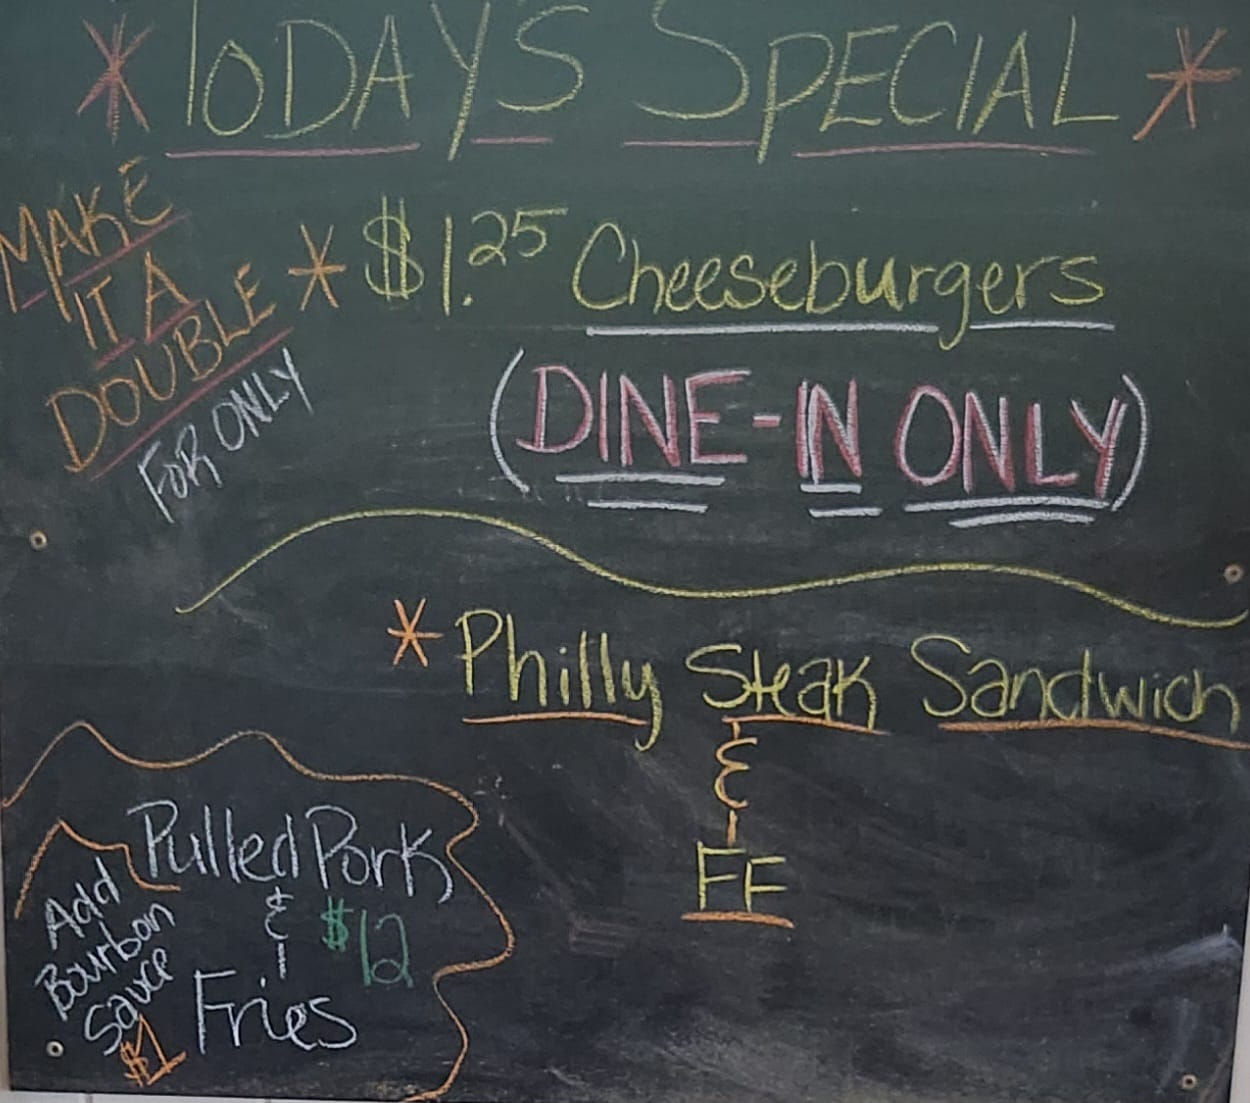 * TODAY'S SPECIAL *
MAKE
IT A
DOUBLE
FOR ONLY
* $1.25 Cheeseburgers
(DINE-IN ONLY)
* Philly Steak Sandwich
&
FF
Pulled Pork
& $12
Fries
Add
Bourbon
Sauce
$1